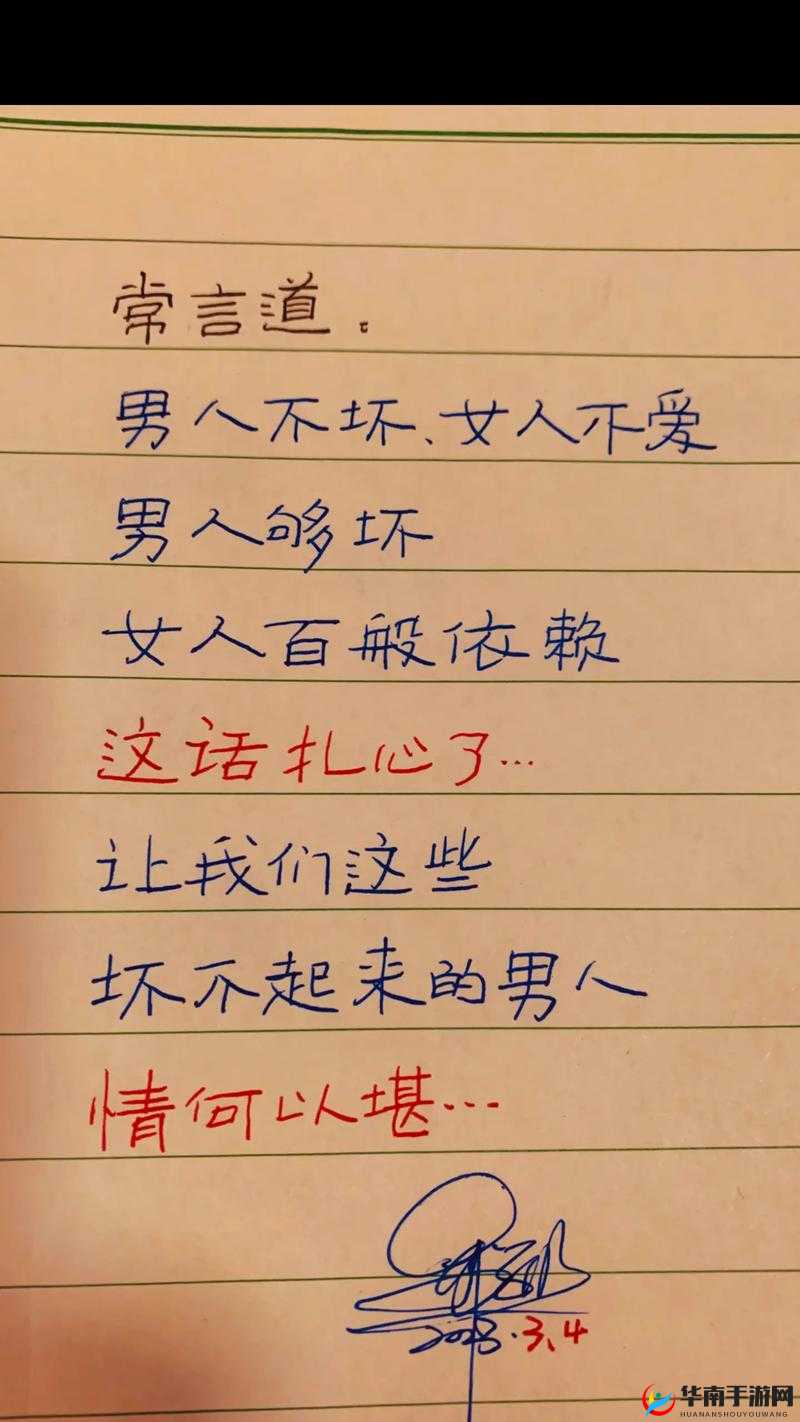 常言道。
男人不坏、女人不爱
男人够坏
女人百般依赖
这话扎心了…
让我们这些
坏不起来的男人
情何以堪…
2023.3.4
华南手游网
HUANANSHOUYOUWANG